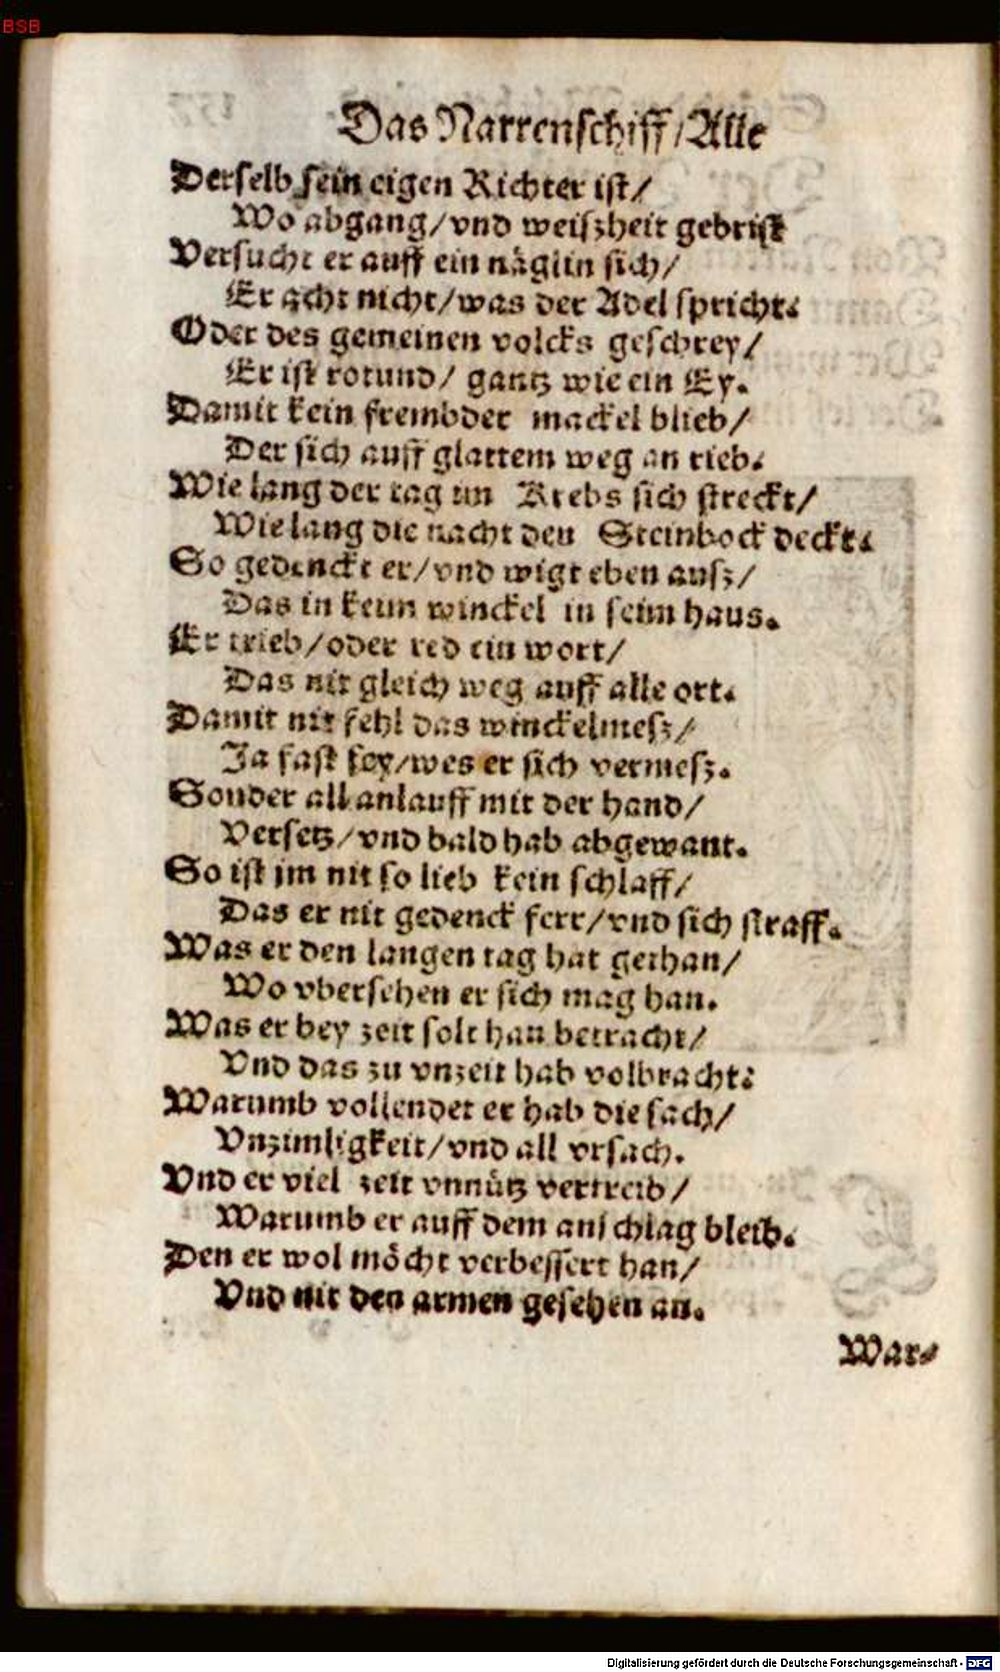 BSB
Das Narrenschiff / Alle
Derselb sein eigen Richter ist /
Wo abgang / vnd weiszheit gebrist
Versucht er auff ein näglin sich /
Er acht nicht / was der Adel spricht.
Oder des gemeinen volcks geschrey /
Er ist rotund / gantz wie ein Ey.
Damit kein frembder mackel blieb /
Der sich auff glattem weg an rieb.
Wie lang der tag im Krebs sich streckt /
Wie lang die nacht den Steinbock deckt.
So gedenckt er / vnd wigt eben ausz /
Das in keim winckel in seim haus.
Er trieb / oder red ein wort /
Das nit gleich weg auff alle ort.
Damit nit fehl das winckelmesz /
Ja fast sey / wes er sich vermesz.
Sonder all anlauff mit der hand /
Versetz / vnd bald hab abgewant.
So ist jm nit so lieb kein schlaff /
Das er nit gedenck ferr / vnd sich straff.
Was er den langen tag hat gethan /
Wo vbersehen er sich mag han.
Was er bey zeit solt han betracht /
Vnd das zu vnzeit hab volbracht.
Warumb vollendet er hab die sach /
Vnzimligkeit / vnd all vrsach.
Vnd er viel zeit vnnütz vertreib /
Warumb er auff dem anschlag bleib.
Den er wol möcht verbessert han /
Vnd nit den armen gesehen an.
War-
Digitalisierung gefördert durch die Deutsche Forschungsgemeinschaft - DFG